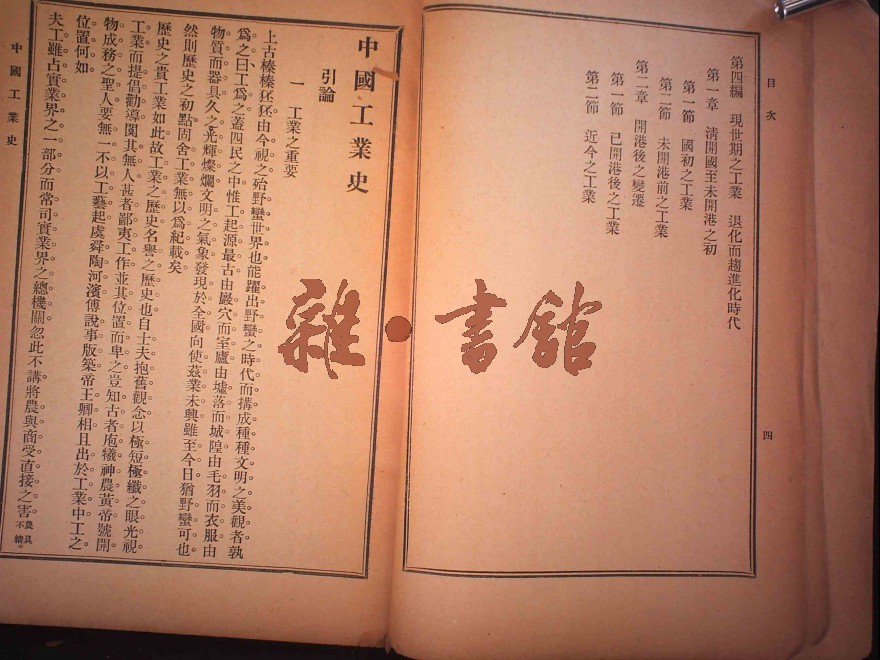 目次
四
第四編 現世期之工業 退化而趨進化時代
第一章 清開國至未開港之初
第一節 國初之工業
第二節 未開港前之工業
第二章 開港後之變遷
第一節 已開港後之工業
第二節 近今之工業
中國工業史
引論
一 工業之重要
上古榛榛狉狉由今視之殆野蠻世界也能躍出野蠻之時代而搆成種種文明之美觀者孰
爲之曰工爲之蓋四民之中惟工起源最古由巖穴而室廬由墟落而城隍由毛羽而衣服由
物質而器具久之光輝燦爛文明之氣象發現於全國向使茲業未興雖至今日猶野蠻可也
然則歷史之初點固舍工業無以爲紀載矣
歷史之貴工業如此故工業之歷史名譽之歷史也自士夫抱舊觀念以極短極纖之眼光視
工業而提倡勸導闃其無人甚者鄙夷工作並其位置而卑之豈知古者庖犧神農黃帝號開
物成務之聖人要無一不以工藝起處舜陶河濱傅說事版築帝王卿相且出於工業中工之
位置何如
夫工雖占實業界之一部分而常司實業界之總機關忽此不講將農與商受直接之害農具
不精。
中國工業史
雜·書館